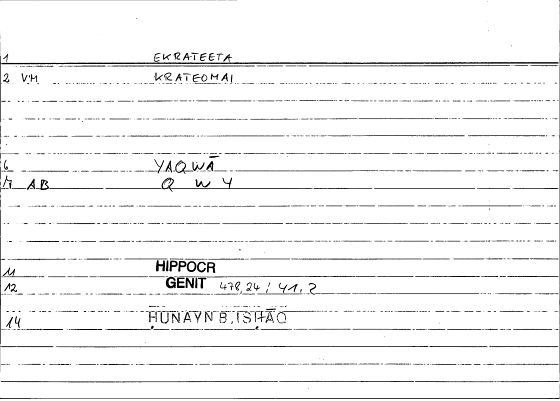 1 EKRATEETA
2 VM KRATEOMAI
6 YAQWĀ
7 AB Q W Y
11 HIPPOCR
12 GENIT 478,24 / 41.2
14 ḤUNAYN B. ISḤĀQ